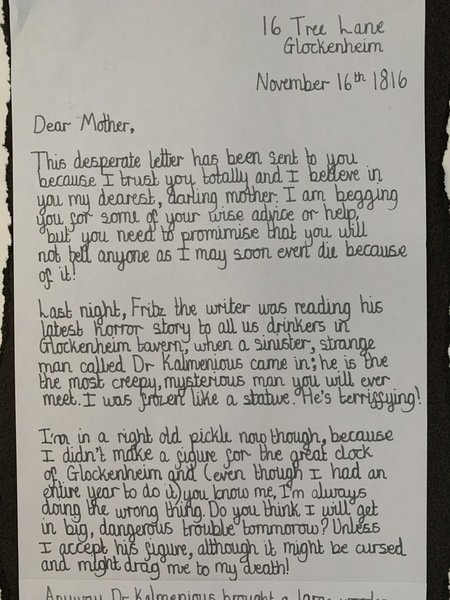 16 Tree Lane
Glockenheim
November 16th 1816
Dear Mother,
This desperate letter has been sent to you
because I trust you totally and I believe in
you my dearest, darling mother. I am begging
you for some of your wise advice or help,
but you need to promimise that you will
not tell anyone as I may soon even die because
of it!
Last night, Fritz the writer was reading his
latest horror story to all us drinkers in
Glockenheim tavern, when a sinister, strange
man called Dr Kalmenious came in; he is the
the most creepy, mysterious man you will ever
meet. I was frozen like a statue. He's terrifying!
I'm in a right old pickle now though, because
I didn't make a figure for the great clock
of Glockenheim and (even though I had an
entire year to do it) you know me, I'm always
doing the wrong thing. Do you think I will get
in big, dangerous trouble tommorow? Unless
I accept his figure, although it might be cursed
and might drag me to my death!
Anyway Dr Kalmenious brought a large wooden